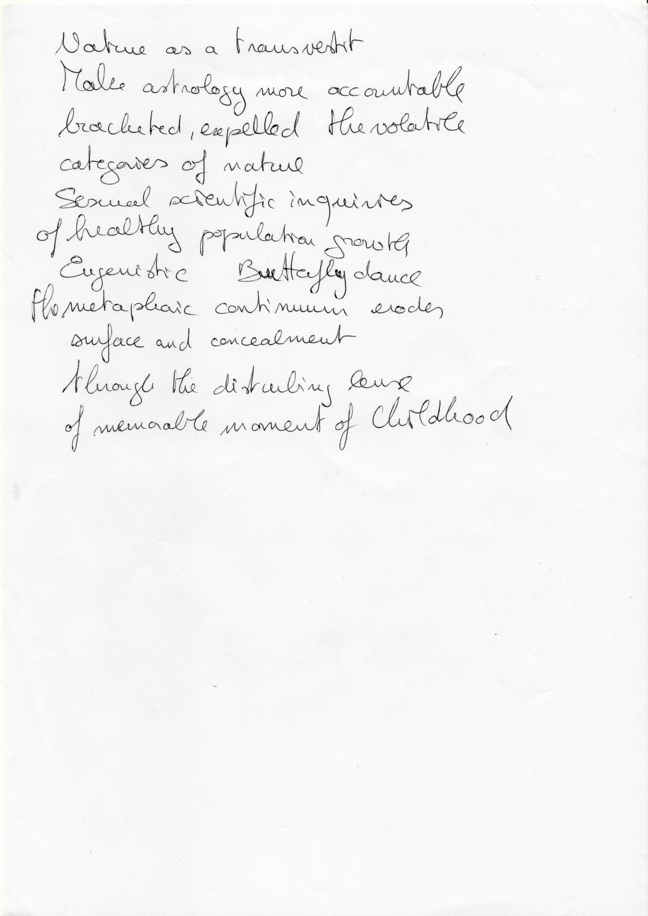 Nature as a transvestit
Make astrology more accountable
bracketed, expelled the volatile
categories of nature
Sexual scientific inquiries
of healthy population growth
Eugenistic Butterfly dance
the metaphoric continuum erodes
surface and concealment
through the disturbing lense
of memorable moment of Childhood